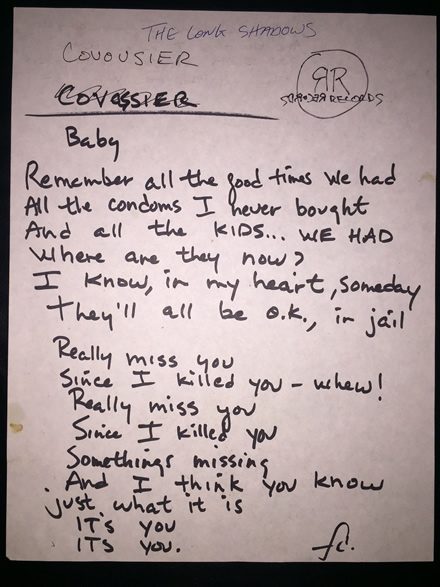 THE LONG SHADOWS
COVOUSIER
Baby
Remember all the good times we had
All the condoms I never bought
And all the KIDS... WE HAD
Where are they now?
I know, in my heart, someday
they'll all be o.k., in jail
Really miss you
Since I killed you - whew!
Really miss you
Since I killed you
Somethings missing
And I think you know
just what it is
IT'S you
ITS you.